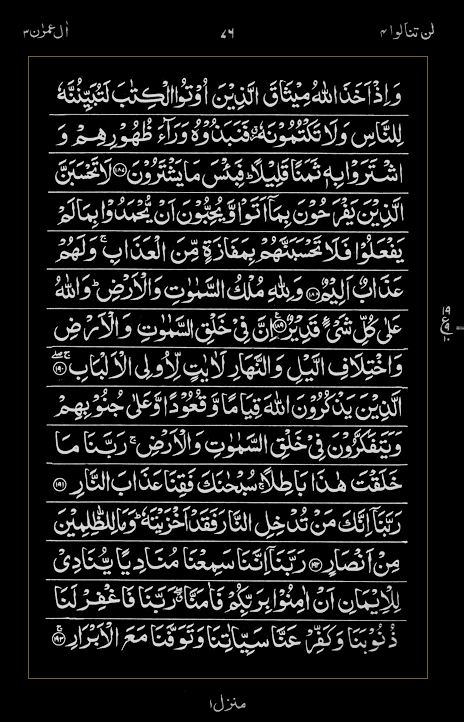 لن تنالوا ٤ ٧٦ اٰل عمرٰن ٣
وَاِذْ اَخَذَ اللّٰهُ مِيْثَاقَ الَّذِيْنَ اُوْتُوا الْكِتٰبَ لَتُبَيِّنُنَّهٗ
لِلنَّاسِ وَلَا تَكْتُمُوْنَهٗ فَنَبَذُوْهُ وَرَآءَ ظُهُوْرِهِمْ وَ
اشْتَرَوْا بِهٖ ثَمَنًا قَلِيْلًا ؕ فَبِئْسَ مَا يَشْتَرُوْنَ ۝۱۸۷ لَا تَحْسَبَنَّ
الَّذِيْنَ يَفْرَحُوْنَ بِمَاۤ اَتَوْا وَّيُحِبُّوْنَ اَنْ يُّحْمَدُوْا بِمَا لَمْ
يَفْعَلُوْا فَلَا تَحْسَبَنَّهُمْ بِمَفَازَةٍ مِّنَ الْعَذَابِ ۚ وَلَهُمْ
عَذَابٌ اَلِيْمٌ ۝۱۸۸ وَلِلّٰهِ مُلْكُ السَّمٰوٰتِ وَالْاَرْضِ ؕ وَاللّٰهُ
عَلٰى كُلِّ شَیْءٍ قَدِيْرٌ ۝۱۸۹ اِنَّ فِیْ خَلْقِ السَّمٰوٰتِ وَالْاَرْضِ
وَاخْتِلَافِ الَّيْلِ وَالنَّهَارِ لَاٰيٰتٍ لِّاُولِی الْاَلْبَابِ ۝۱۹۰
الَّذِيْنَ يَذْكُرُوْنَ اللّٰهَ قِيَامًا وَّقُعُوْدًا وَّعَلٰى جُنُوْبِهِمْ
وَيَتَفَكَّرُوْنَ فِیْ خَلْقِ السَّمٰوٰتِ وَالْاَرْضِ ۚ رَبَّنَا مَا
خَلَقْتَ هٰذَا بَاطِلًا ۚ سُبْحٰنَكَ فَقِنَا عَذَابَ النَّارِ ۝۱۹۱
رَبَّنَاۤ اِنَّكَ مَنْ تُدْخِلِ النَّارَ فَقَدْ اَخْزَيْتَهٗ ؕ وَمَا لِلظّٰلِمِيْنَ
مِنْ اَنْصَارٍ ۝۱۹۲ رَبَّنَاۤ اِنَّنَا سَمِعْنَا مُنَادِيًا يُّنَادِیْ
لِلْاِيْمَانِ اَنْ اٰمِنُوْا بِرَبِّكُمْ فَاٰمَنَّا ۖ رَبَّنَا فَاغْفِرْ لَنَا
ذُنُوْبَنَا وَكَفِّرْ عَنَّا سَيِّاٰتِنَا وَتَوَفَّنَا مَعَ الْاَبْرَارِ ۝۱۹۳
۱۹
ع
۹
۱۰
منزل ۱